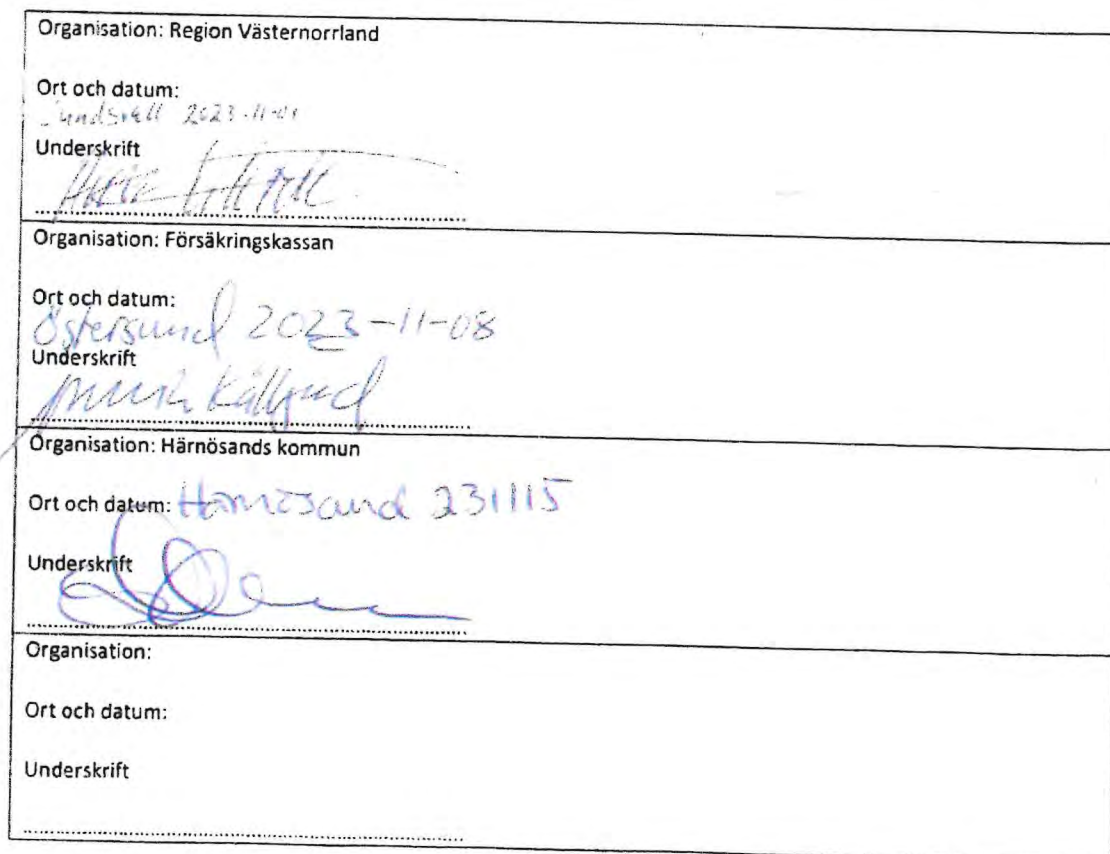 Organisation: Region Västernorrland
Ort och datum:
Sundsvall 2023-11-01
Underskrift
Organisation: Försäkringskassan
Ort och datum:
Östersund 2023-11-08
Underskrift
Organisation: Härnösands kommun
Ort och datum: Härnösand 231115
Underskrift
Organisation:
Ort och datum:
Underskrift